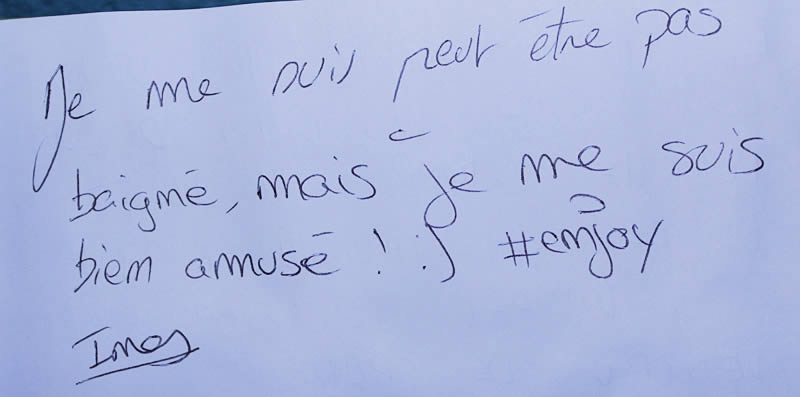 Je me suis peut être pas
baigné, mais je me suis
bien amusé ! :) #enjoy
Ines